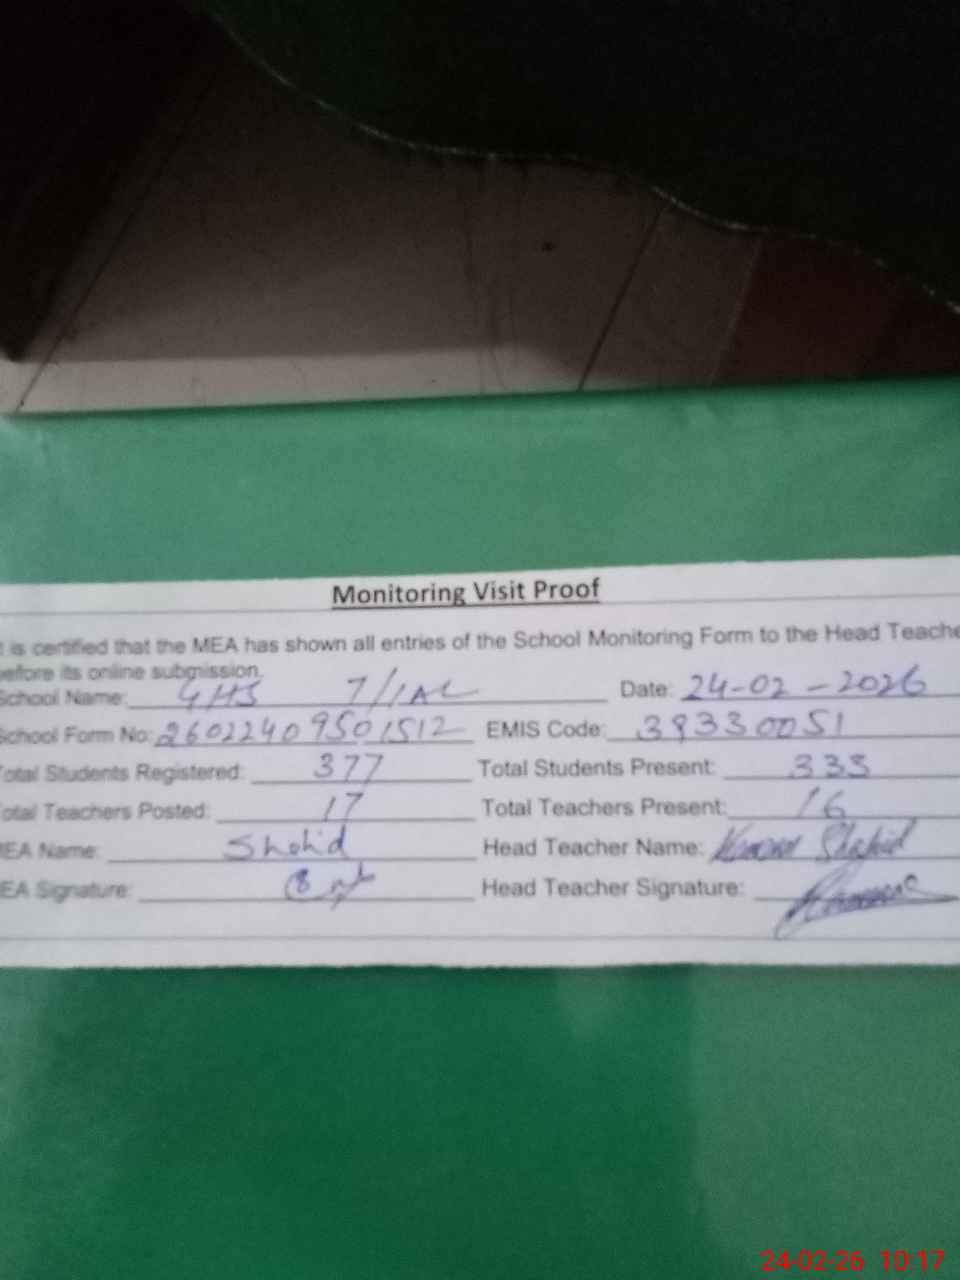 Monitoring Visit Proof
t is certified that the MEA has shown all entries of the School Monitoring Form to the Head Teache
efore its online submission.
School Name: GHS 7/1AL Date: 24-02-2026
School Form No: 26022409501512 EMIS Code: 39330051
otal Students Registered: 377 Total Students Present: 333
otal Teachers Posted: 17 Total Teachers Present: 16
EA Name: Shahid Head Teacher Name: Shahid
EA Signature: Head Teacher Signature:
24-02-26 10:17